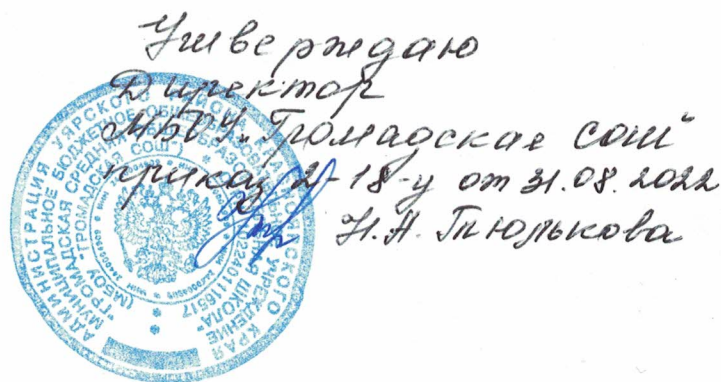 Утверждаю
Директор
МБОУ "Громадская СОШ"
приказ 2-18-у от 31.08.2022
Н.А. Тюлькова
АДМИНИСТРАЦИЯ УЯРСКОГО РАЙОНА КРАСНОЯРСКОГО КРАЯ
МУНИЦИПАЛЬНОЕ БЮДЖЕТНОЕ ОБЩЕОБРАЗОВАТЕЛЬНОЕ УЧРЕЖДЕНИЕ
"ГРОМАДСКАЯ СРЕДНЯЯ ШКОЛА"
(МБОУ "ГРОМАДСКАЯ СОШ")